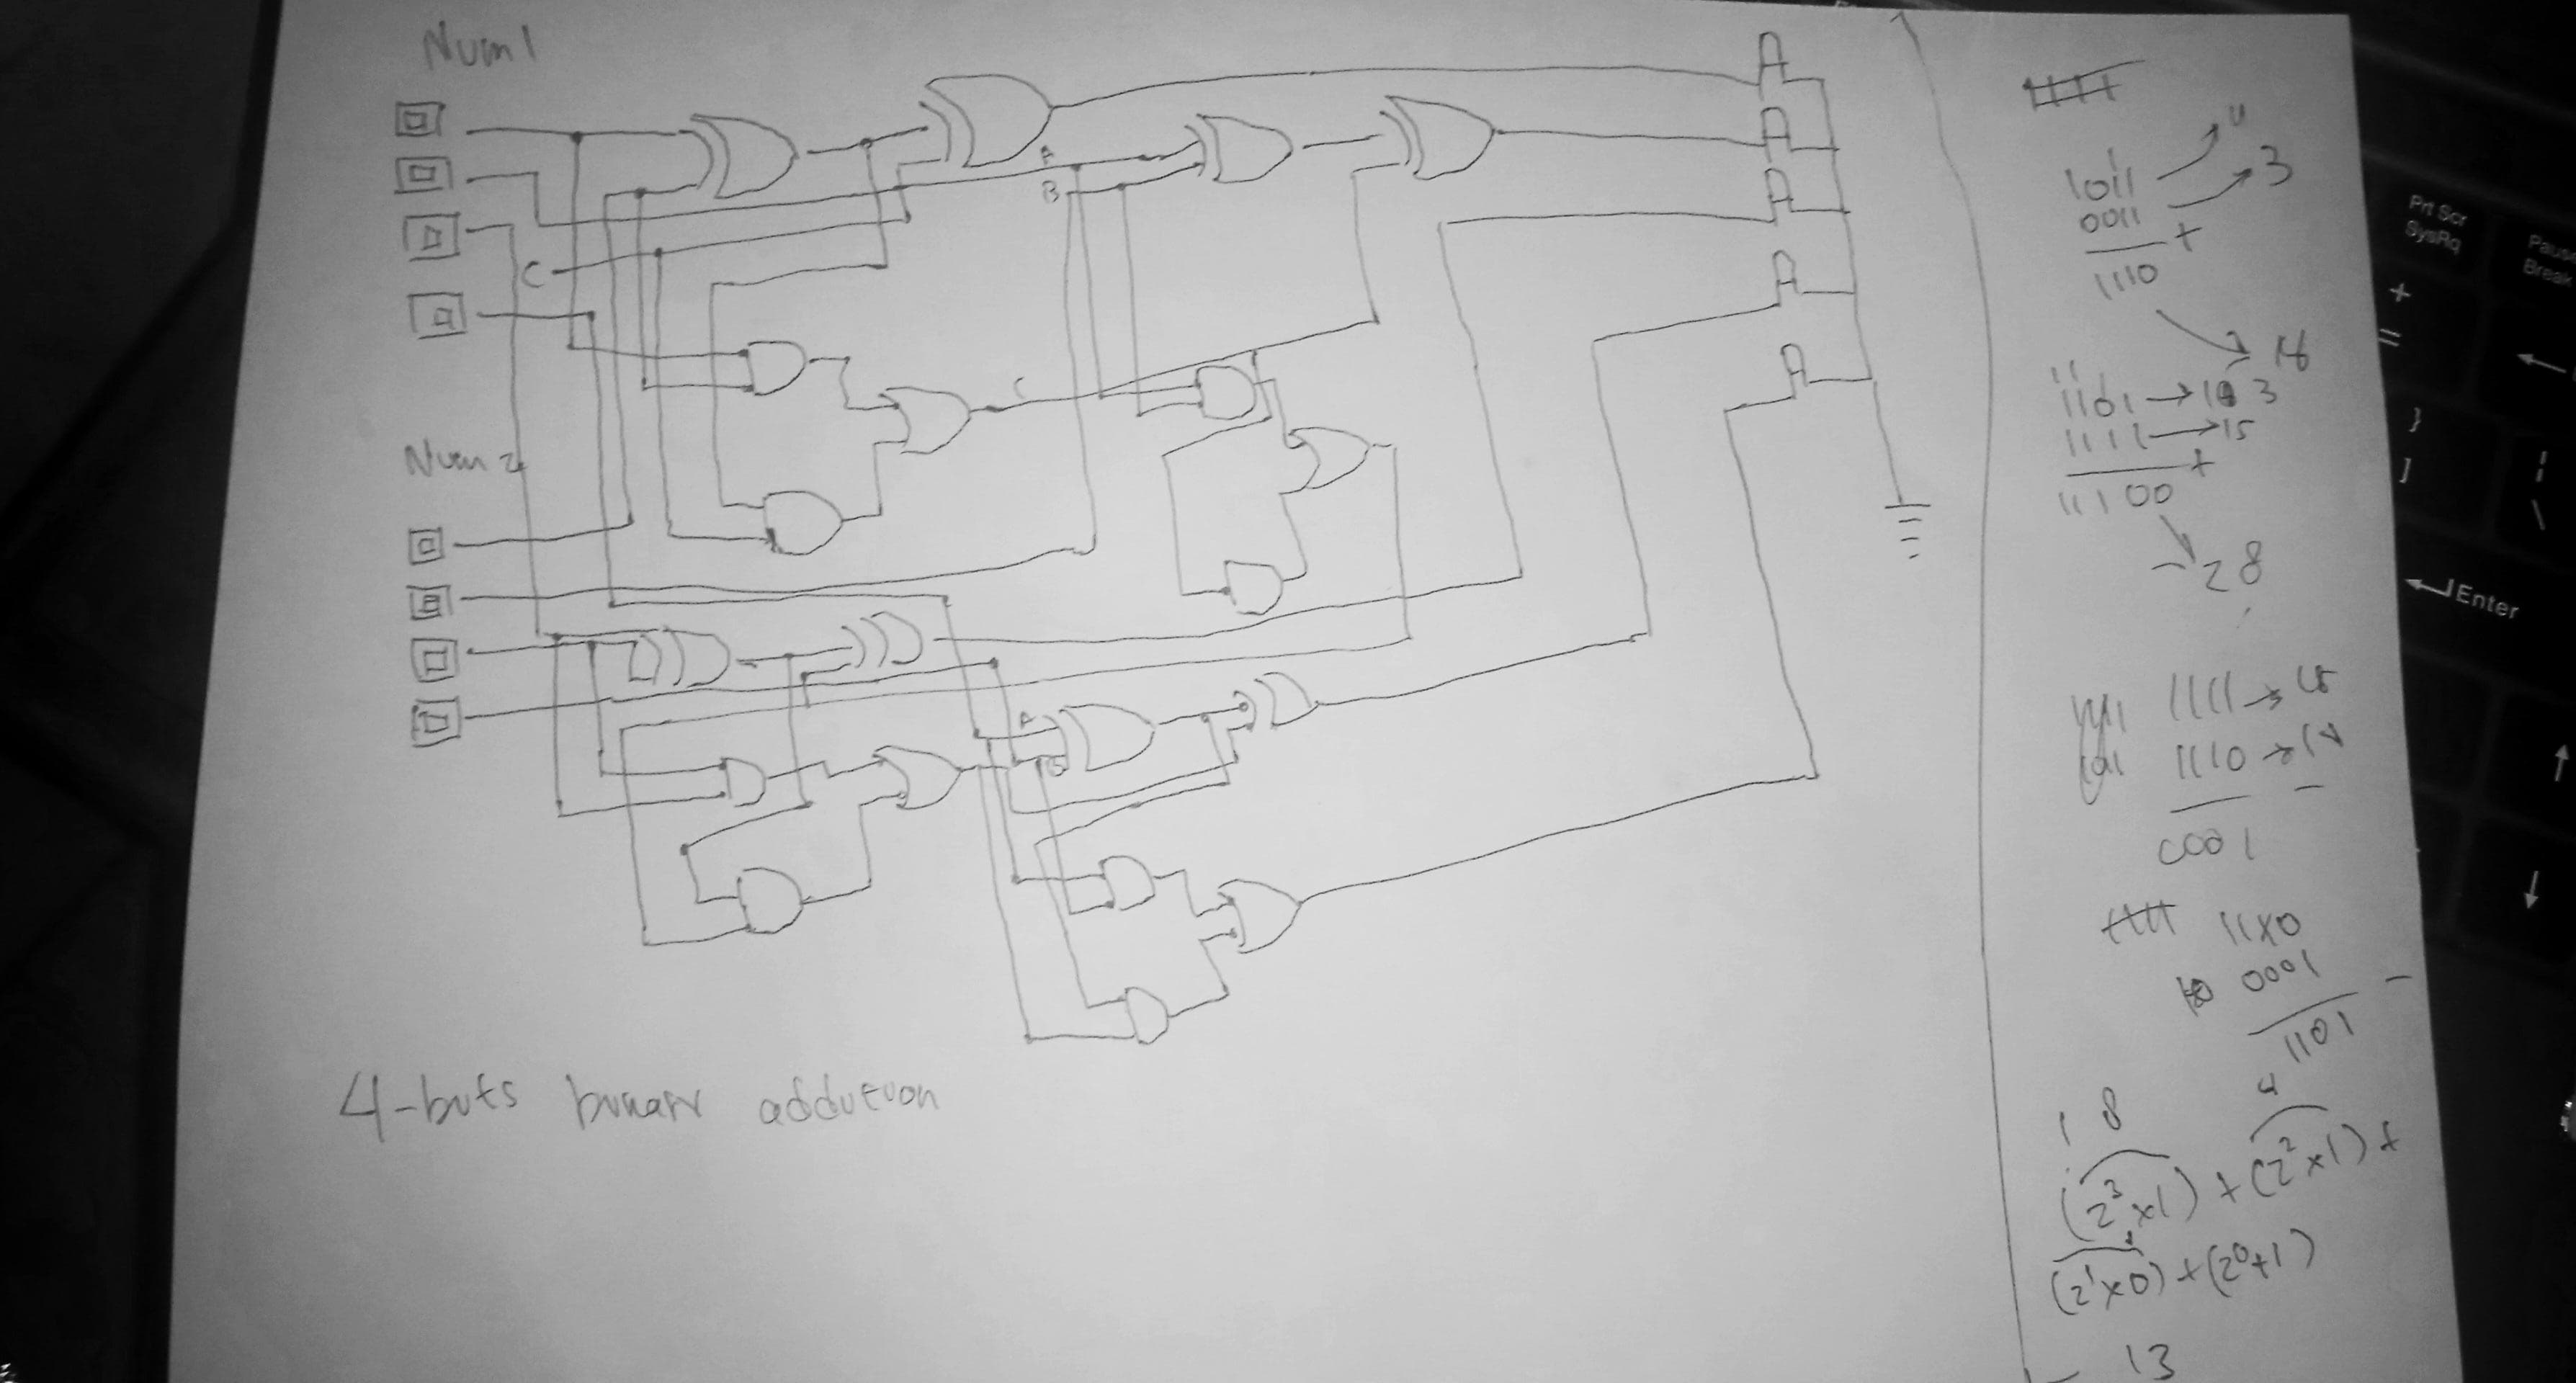 Num1
A
B
C
C
Num 2
A
B
4-buts bunarr addutuon
1
1011
11
0011
3
+
1110
1101
3
1111
15
+
11100
28
1111
15
1110
14
0001
11x0
0001
1101
1 8
4
(2³x1) + (2²x1) +
(2¹x0) + (2⁰+1)
13
Prt Scr
SysRq
Pause
Break
+
=
}
]
|
\
Enter